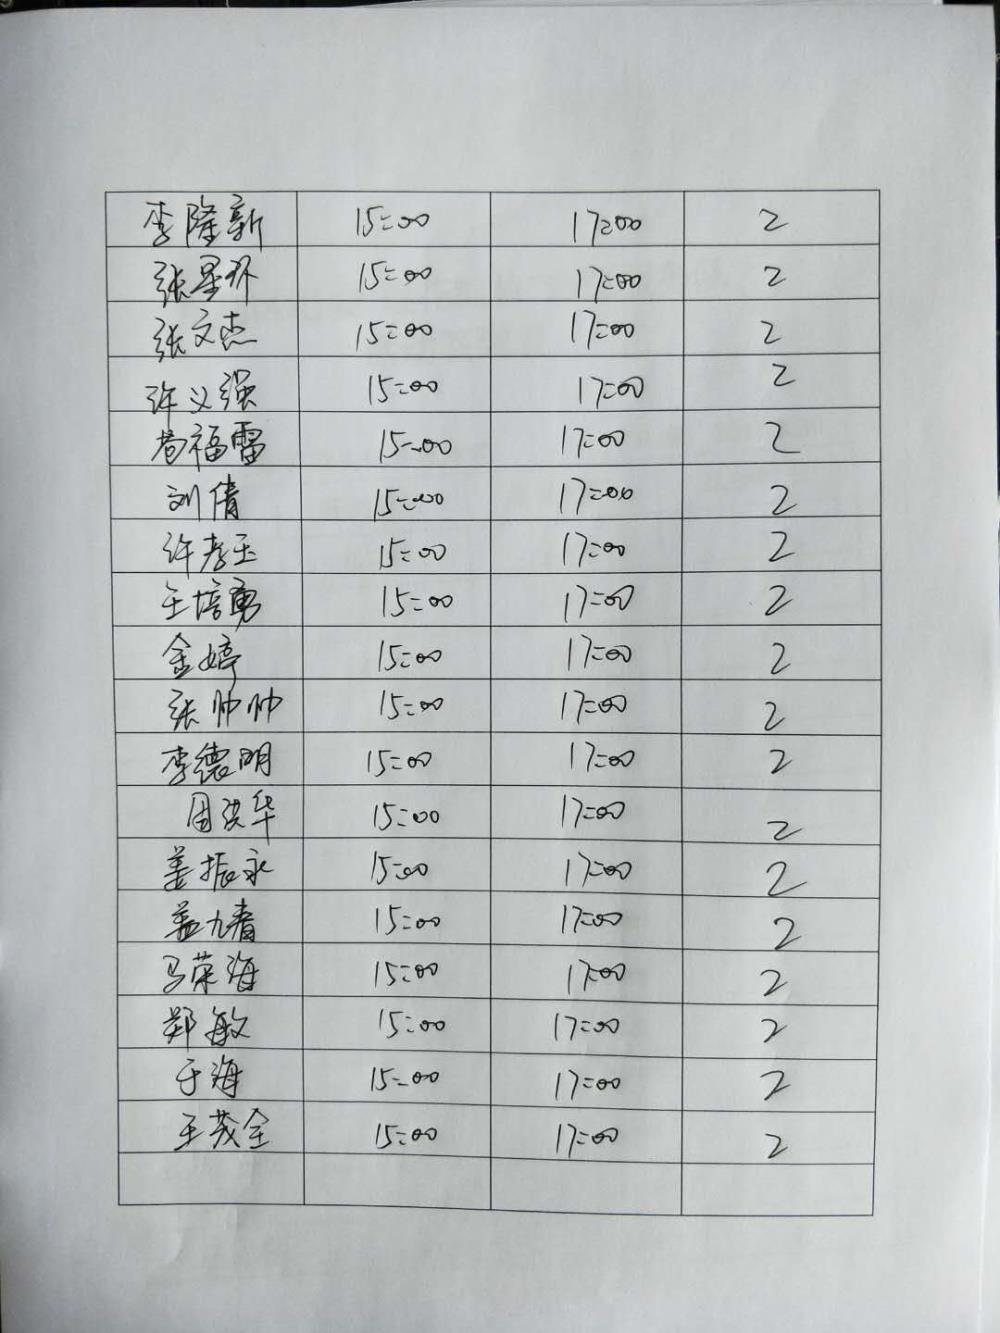 李隆新 15:00 17:00 2
张星环 15:00 17:00 2
张文杰 15:00 17:00 2
许义强 15:00 17:00 2
福雷 15:00 17:00 2
刘倩 15:00 17:00 2
许孝玉 15:00 17:00 2
王培勇 15:00 17:00 2
金婷 15:00 17:00 2
张帅帅 15:00 17:00 2
李德明 15:00 17:00 2
周洪华 15:00 17:00 2
姜振永 15:00 17:00 2
九春 15:00 17:00 2
马荣海 15:00 17:00 2
郑敏 15:00 17:00 2
于海 15:00 17:00 2
王茂全 15:00 17:00 2